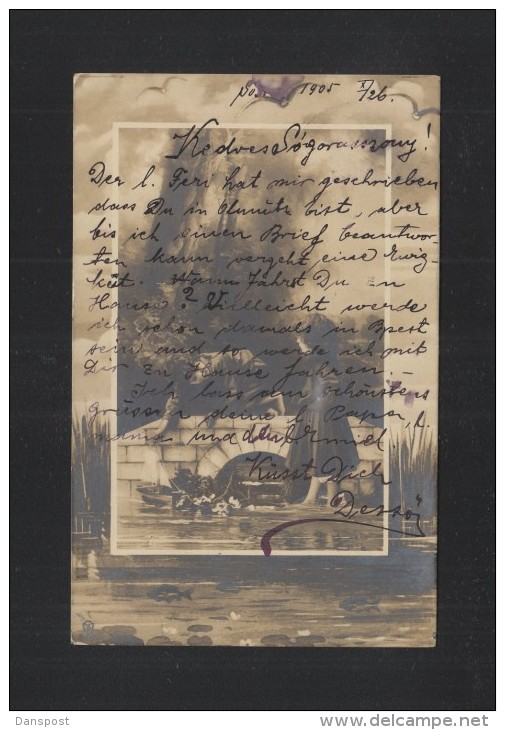 1905 X/26.
Kedves Sógorasszony!
Der l. Feri hat mir geschrieben
dass Du in Olmütz bist, aber
bis ich einen Brief beantwor-
ten kann vergeht eine Ewig-
keit. Wann fährst Du zu
Hause? Vielleicht werde
ich schon damals in Pest
sein und so werde ich mit
Dir zu Hause fahren. -
Ich lass am schönstens
grüssen deine l. Papa, l.
mama und den Ermiel
Küsst Dich
Dessö
Danspost
www.delcampe.net